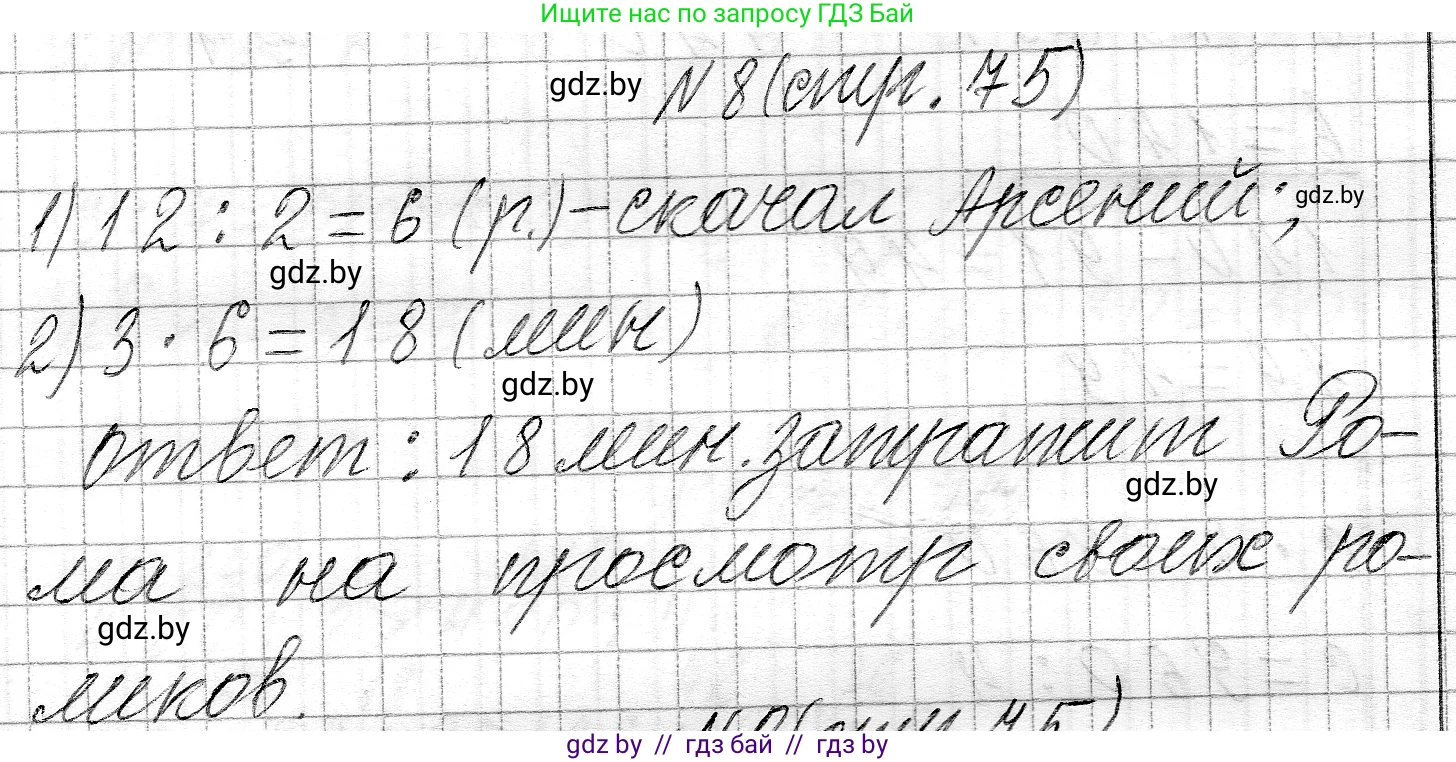 Ищите нас по запросу ГДЗ Бай
gdz.by
N 8 (стр. 75)
1) 12 : 2 = 6 (р.) – скачал Арсений;
gdz.by
gdz.by
2) 3 · 6 = 18 (мин)
gdz.by
ответ: 18 мин. затратит Ро-
gdz.by
ма на просмотр своих ро-
gdz.by
ликов.
gdz.by // гдз бай // гдз by